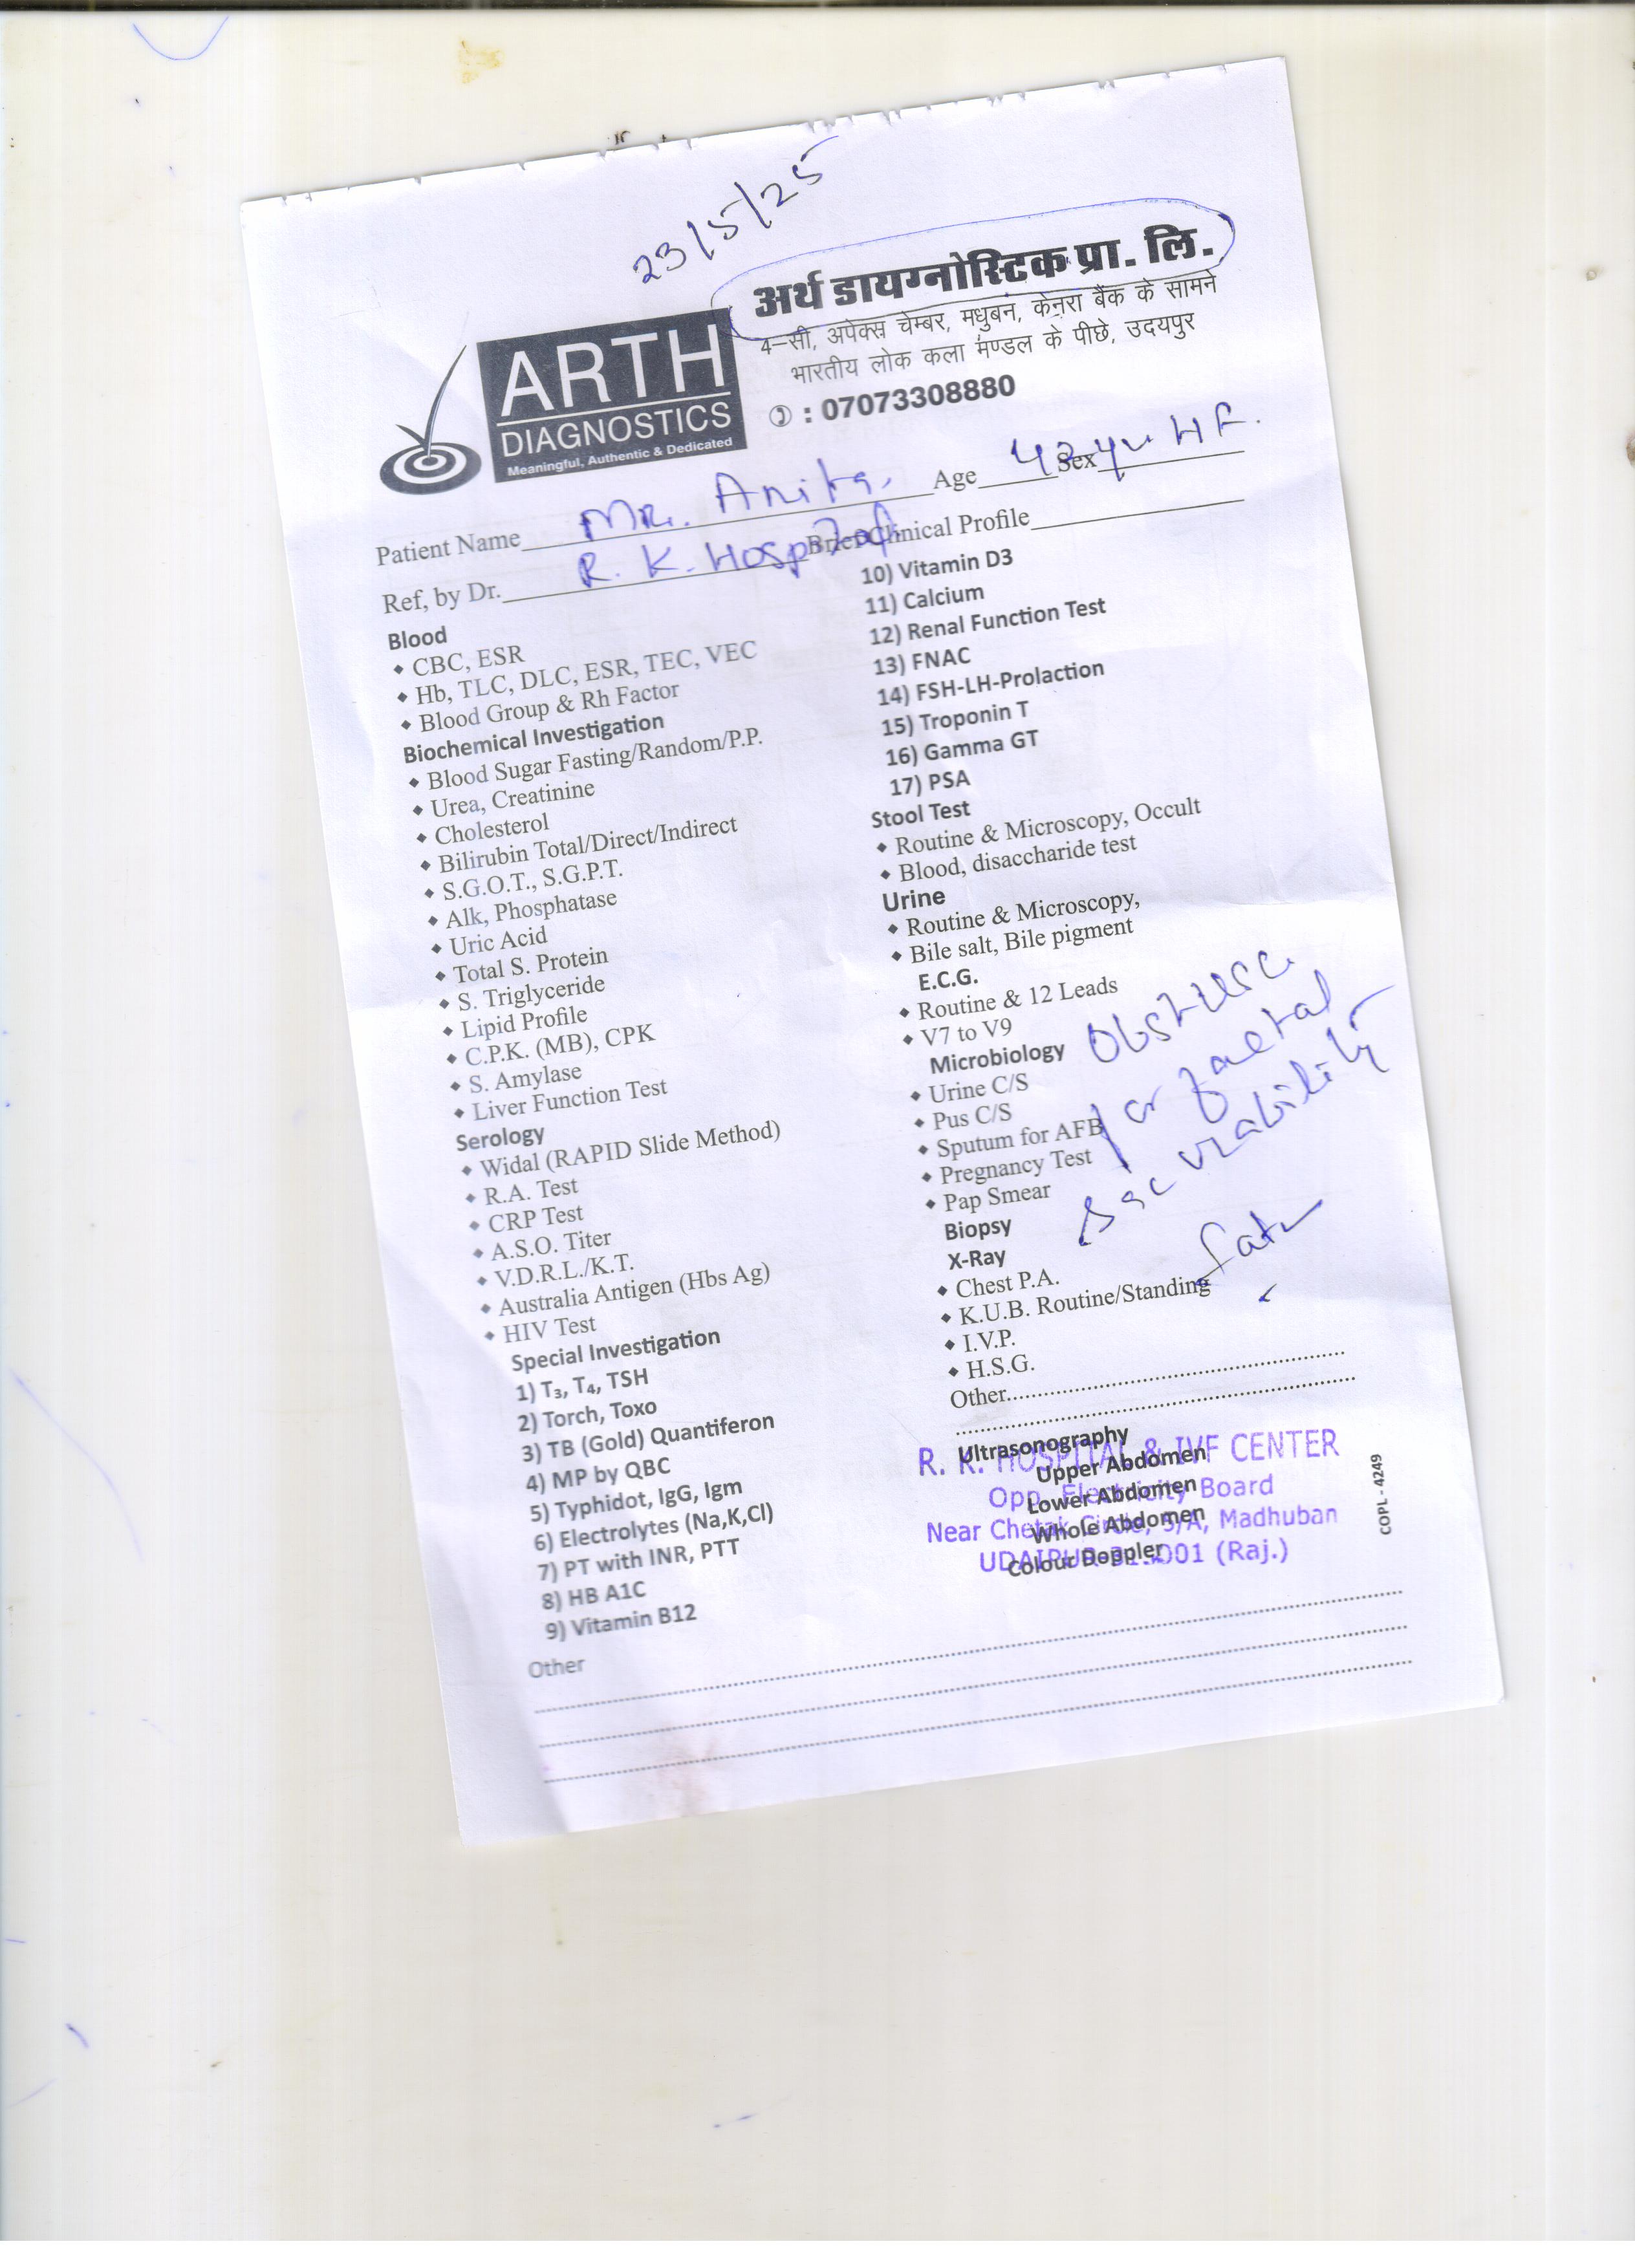 23/5/25
अर्थ डायग्नोस्टिक प्रा. लि.
4-सी, अपेक्स चेम्बर, मधुबन, केनरा बैंक के सामने
भारतीय लोक कला मण्डल के पीछे, उदयपुर
: 07073308880
ARTH
DIAGNOSTICS
Meaningful, Authentic & Dedicated
Patient Name Mr. Anita. Age 42 yr Sex F.
Ref, by Dr. R. K. Hospital Brief Clinical Profile
Blood
CBC, ESR
Hb, TLC, DLC, ESR, TEC, VEC
Blood Group & Rh Factor
Biochemical Investigation
Blood Sugar Fasting/Random/P.P.
Urea, Creatinine
Cholesterol
Bilirubin Total/Direct/Indirect
S.G.O.T., S.G.P.T.
Alk, Phosphatase
Uric Acid
Total S. Protein
S. Triglyceride
Lipid Profile
C.P.K. (MB), CPK
S. Amylase
Liver Function Test
Serology
Widal (RAPID Slide Method)
R.A. Test
CRP Test
A.S.O. Titer
V.D.R.L./K.T.
Australia Antigen (Hbs Ag)
HIV Test
Special Investigation
1) T₃, T₄, TSH
2) Torch, Toxo
3) TB (Gold) Quantiferon
4) MP by QBC
5) Typhidot, IgG, Igm
6) Electrolytes (Na,K,Cl)
7) PT with INR, PTT
8) HB A1C
9) Vitamin B12
Other
10) Vitamin D3
11) Calcium
12) Renal Function Test
13) FNAC
14) FSH-LH-Prolaction
15) Troponin T
16) Gamma GT
17) PSA
Stool Test
Routine & Microscopy, Occult
Blood, disaccharide test
Urine
Routine & Microscopy,
Bile salt, Bile pigment
E.C.G.
Routine & 12 Leads
V7 to V9
Microbiology
Urine C/S
Pus C/S
Sputum for AFB
Pregnancy Test
Pap Smear
Biopsy
X-Ray
Chest P.A.
K.U.B. Routine/Standing
I.V.P.
H.S.G.
Other
for faetal
sac viability
Ultrasonography
Upper Abdomen
Lower Abdomen
Whole Abdomen
Colour Doppler
R. K. HOSPITAL & IVF CENTER
Opp. Electricity Board
Near Chetak Circle, 5/A, Madhuban
UDAIPUR (Raj.)
COPL - 4249